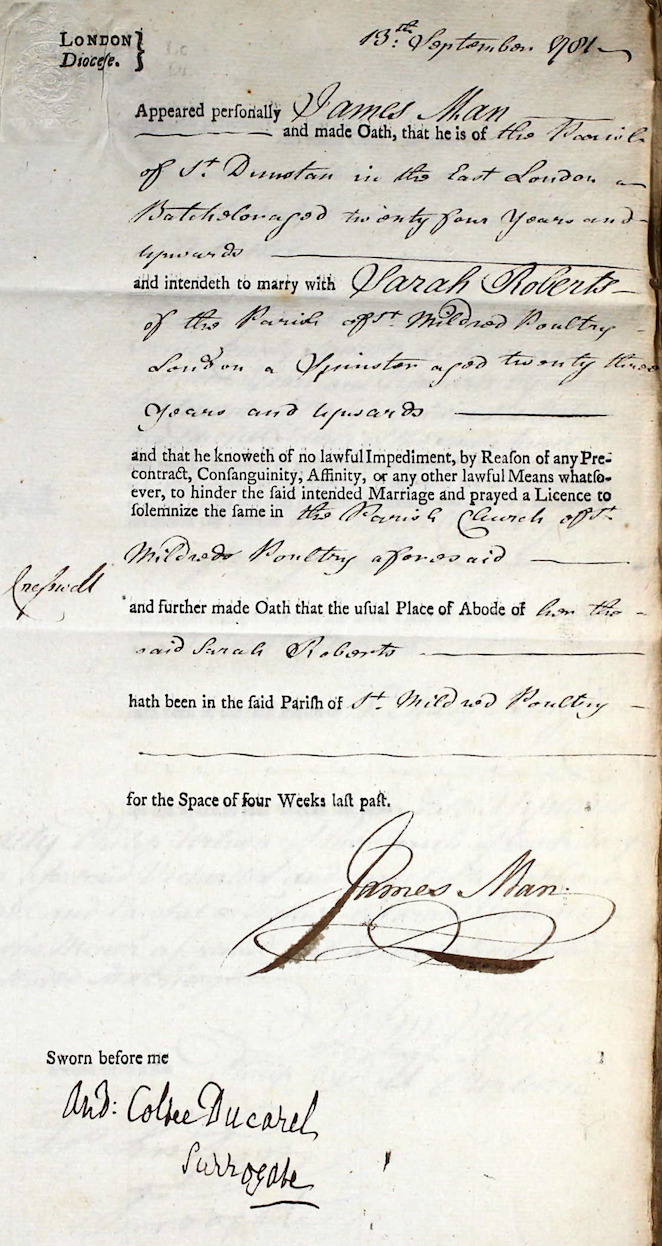 LONDON }
Dioceſe. }
13.th September 1781
Appeared perſonally James Man
and made Oath, that he is of the Parish
of St. Dunstan in the East London a
Batchelor aged twenty four Years and
upwards
and intendeth to marry with Sarah Roberts
of the Parish of St. Mildred Poultry
London a Spinster aged twenty three
Years and upwards
and that he knoweth of no lawful Impediment, by Reaſon of any Pre-
contract, Conſanguinity, Affinity, or any other lawful Means whatſo-
ever, to hinder the ſaid intended Marriage and prayed a Licence to
ſolemnize the ſame in the Parish Church of St.
Mildreds Poultry aforesaid
Creſswell
and further made Oath that the uſual Place of Abode of her the
said Sarah Roberts
hath been in the ſaid Pariſh of St. Mildred Poultry
for the Space of four Weeks laſt paſt.
James Man.
Sworn before me
And: Coltee Ducarel
Surrogate